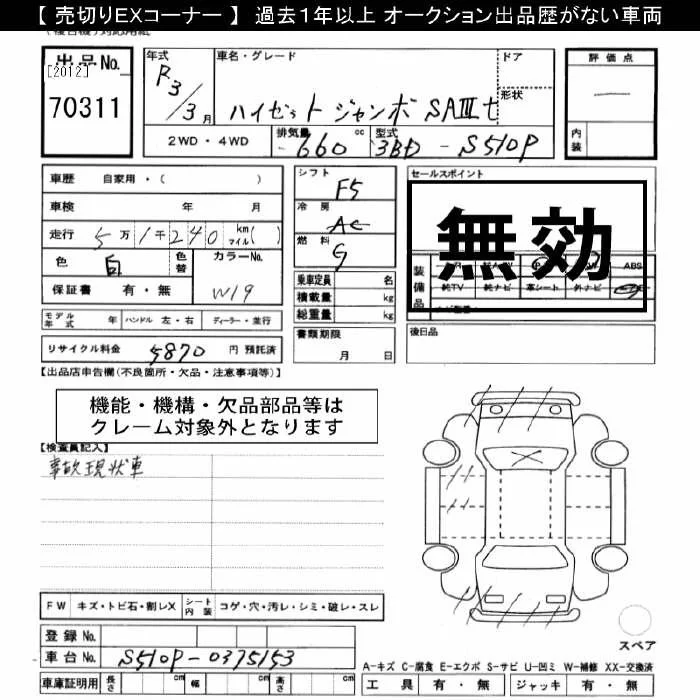 【 売切りEXコーナー 】 過去1年以上 オークション出品歴がない車両
出品No.
[2012]
70311
年式
R3/3月
車名・グレード
ハイゼット ジャンボ SAⅢt
ドア
形状
評価点
内装
2WD・4WD
排気量 660 cc
型式 3BD-S510P
車歴 自家用・( )
車検 年 月
走行 5万1千240 km マイル( )
色 白
色替
カラーNo.
W19
保証書 有・無
モデル年式 年
ハンドル 左・右
ディーラー・並行
リサイクル料金 5870 円 預託済
シフト F5
冷房 AC
燃料 G
乗車定員 名
積載量 kg
総重量 kg
書類期限
月 日
セールスポイント
無効
装備品
ABS
純TV 純ナビ 革シート 外ナビ
後日品
【出品店申告欄(不良箇所・欠品・注意事項等)】
機能・機構・欠品部品等は
クレーム対象外となります
【検査員記入】
事故現状車
FW キズ・トビ石・割レX
シート内装 コゲ・穴・汚レ・シミ・破レ・スレ
登録 No.
車台 No. S510P-0375153
車庫証明用 長さ cm 幅 cm 高さ cm
スペア
A-キズ C-腐食 E-エクボ S-サビ U-凹ミ W-補修 XX-交換済
工具 有・無 ジャッキ 有・無